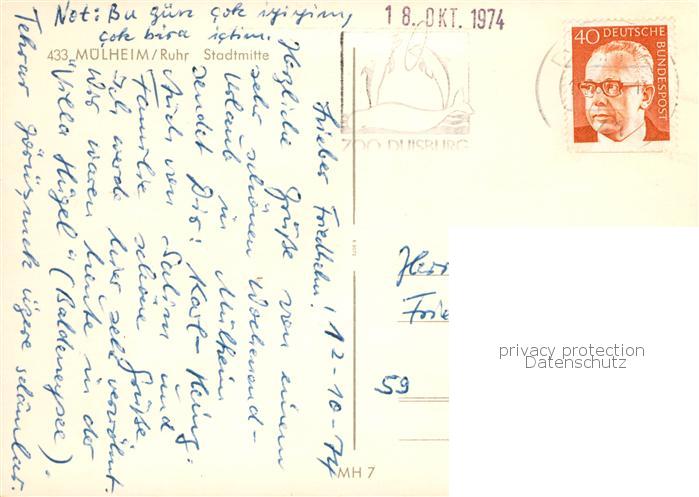 Not: Bu gün çok içiyim,
çok bira içtim.
18. OKT. 1974
433 MÜLHEIM/Ruhr Stadtmitte
ZOO DUISBURG
40 DEUTSCHE
BUNDESPOST
12-10-74
Lieber Friedhelm!
Herzliche Grüße von einem
sehr schönen Wochenend-
Urlaub in Mülheim
sendet Dir: Karl-Heinz.
Auch von Salim und
Familie schöne Grüße.
Ich werde hier sehr verwöhnt.
Wir waren heute in der
"Villa Hügel" (Baldeneysee).
Tekrar görüşmek üzere selâmlar.
Herr
Frie
59
privacy protection
Datenschutz
MH 7